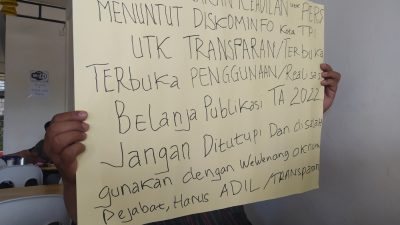 KEADILAN utk PERS
MENUNTUT DISKOMINFO Kota TPI
UTK TRANSPARAN/Terbuka
TERBUKA PENGGUNAAN/Realisasi
Belanja Publikasi TA 2022
Jangan Ditutupi Dan disalah
gunakan dengan wewenang oknum
Pejabat, Harus ADIL/Transparan